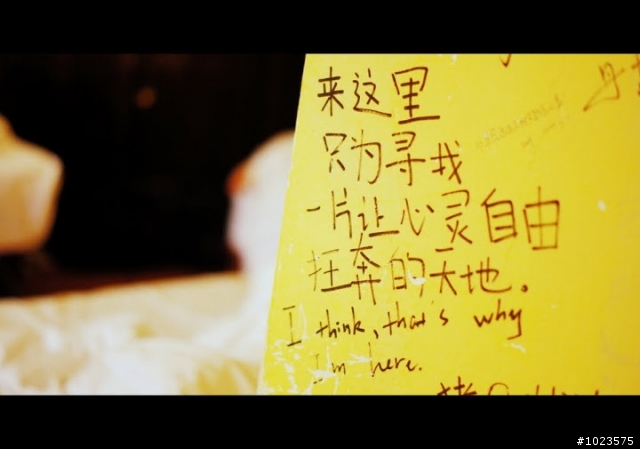 来这里
只为寻找
一片让心灵自由
狂奔的天地。
I think, that's why
I'm here.
#1023575